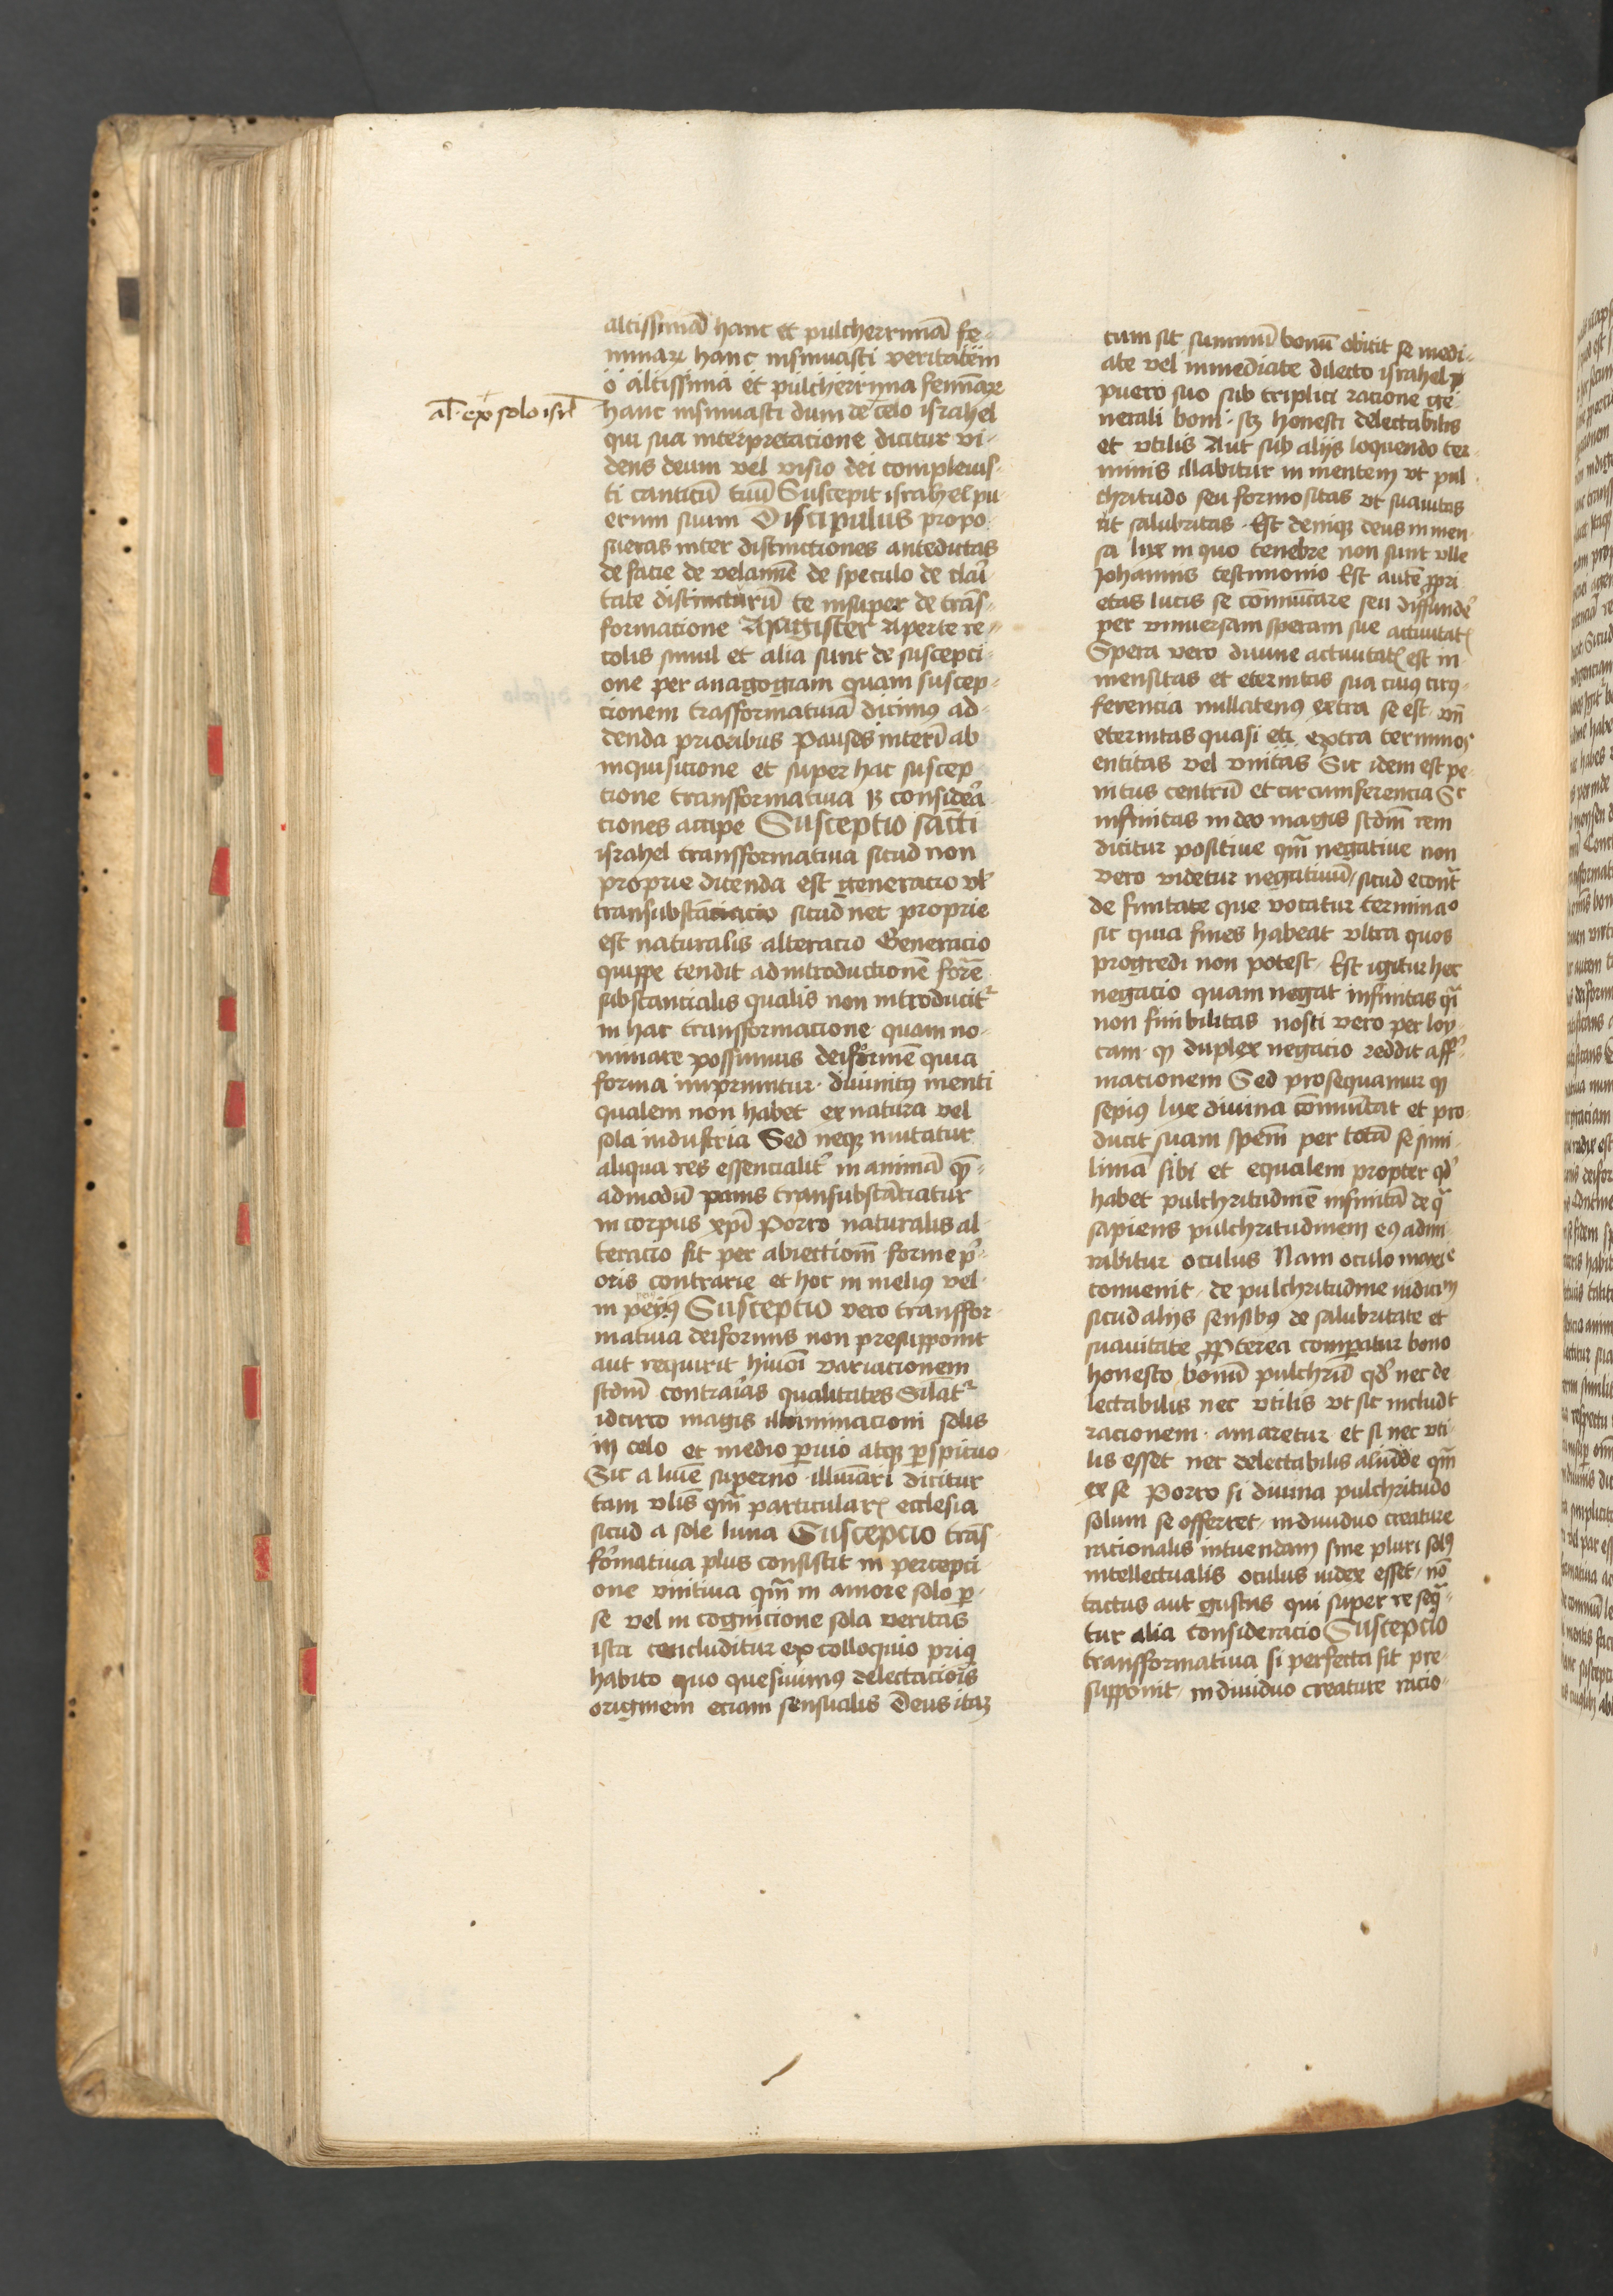 altissimā hanc et pulcherrimā fe-
minaꝝ hanc insinuasti veritatem
o altissima et pulcherrima feminaꝝ
al' ex solo isrl'
hanc insinuasti dum de celo israhel
qui sua interpretacione dicitur vi-
dens deum vel visio dei compleuis-
ti canticū tuū Suscepit israhel pu
erum suum Discipulus propo
sueras inter distinctiones antedictas
de facie de velamīe de speculo de clari
tate distincturū te insuper de trās-
formatione Magister Aperte re-
colis simul et alia sunt de suscepci-
one per anagogiam quam suscep-
cionem trasformatiuā dicimꝰ ad-
denda prioribus Pauses interī ab
inquisicione et super hac suscep
tione transformatiua has considera
ciones accipe Susceptio sācti
israhel transformatiua sicud non
proprie dicenda est generacio vl'
transubstāciacio sicud nec proprie
est naturalis alteracio Generacio
quippe tendit ad introductionē forē
substancialis qualis non introducit᷑
in hac transformacione quam no-
minare possumus deiformē quia
forma imprimitur diuinitꝰ menti
qualem non habet ex natura vel
sola industria Sed neqꝫ mutatur
aliqua res essencialit᷑ in animā quē-
admodū panis transubstāciatur
in corpus xp̄i Porro naturalis al
teracio fit per abiectiom̄ forme p'-
oris contrarie et hoc in melius vel
in peiꝰ Susceptio vero transfor-
matiua deiformis non presupponit
aut requirit hmōi variacionem
scdm̄ contrarias qualitates Silat᷑
idcirco magis illuminacioni solis
in celo et medio ꝑuio atqꝫ ꝑspicuo
Sic a lumē superno illumāri dicitur
tam vlis qm̄ particularꝭ ecclesia
sicud a sole luna Suscepcio trās
formatiua plus consistit in percepci
one vnitiua qm̄ in amore solo ꝑ-
se vel in cognicione sola veritas
ista concluditur ex colloquio priꝰ
habito quo quesiuimꝰ delectaciōis
originem eciam sensualis Deus itaqꝫ
cum sit summū bonū obicit se medi-
ate vel inmediate dilecto israhel
puero suo sub triplici racione ge
nerali boni scꝫ honesti delectabilis
et vtilis Aut sub alijs loquendo ter
minis illabitur in mentem vt pul
chritudo seu formositas vt suauitas
vt salubritas Est deniqꝫ deus inmen
sa lux in quo tenebre non sunt vlle
Johannis testimonio Est autē ꝓpri
etas lucis se comūicare seu diffunde'
per vniuersam speram sue actiuitatꝭ
Spera vero diuine actiuitatꝭ est in
mensitas et eternitas sua cuiꝰ circū-
ferencia nullatenꝰ extra se est vn̄
eternitas quasi etī extra terminos
entitas vel vnitas Sic idem est pe
nitus centrū et circumferencia Sic
infinitas in deo magis scdm̄ rem
dicitur positiue qm̄ negatiue non
vero videtur negatiuū sicud econt᷑
de finitate que vocatur terminaͦ
sic quia fines habeat vltra quos
progredi non potest Est igitur hec
negacio quam negat infinitas qī
non finibilitas nosti vero per loy-
cam ꝙ duplex negacio reddit aff'-
macionem Sed prosequamur ꝙ
sepiꝰ lux diuina comūicat et pro
ducit suam spēm per totā se simi
limā sibi et equalem propter qd'
habet pulchritudinē infinitā de q̄
sapiens pulchritudinem eiꝰ admi-
rabitur oculus Nam oculo maxie
conuenit de pulchritudine iudiciū
sicud alijs sensibꝰ de salubritate et
suauitate ꝓpterea comꝑatur bono
honesto bonū pulchrū qd' nec de
lectabilis nec vtilis vt sic includit
racionem amaretur et si nec vti-
lis esset nec delectabilis aliūde qm̄
ex se Porro si diuina pulchritudo
solum se offerret indiuiduo creature
racionalis intuendam sine pluri solꝰ
intellectualis oculus iudex esset nō
tactus aut gustus qui super re seq̄-
tur alia consideracio Suscepcio
transformatiua si perfecta sit pre-
supponit indiuiduo creature racio-